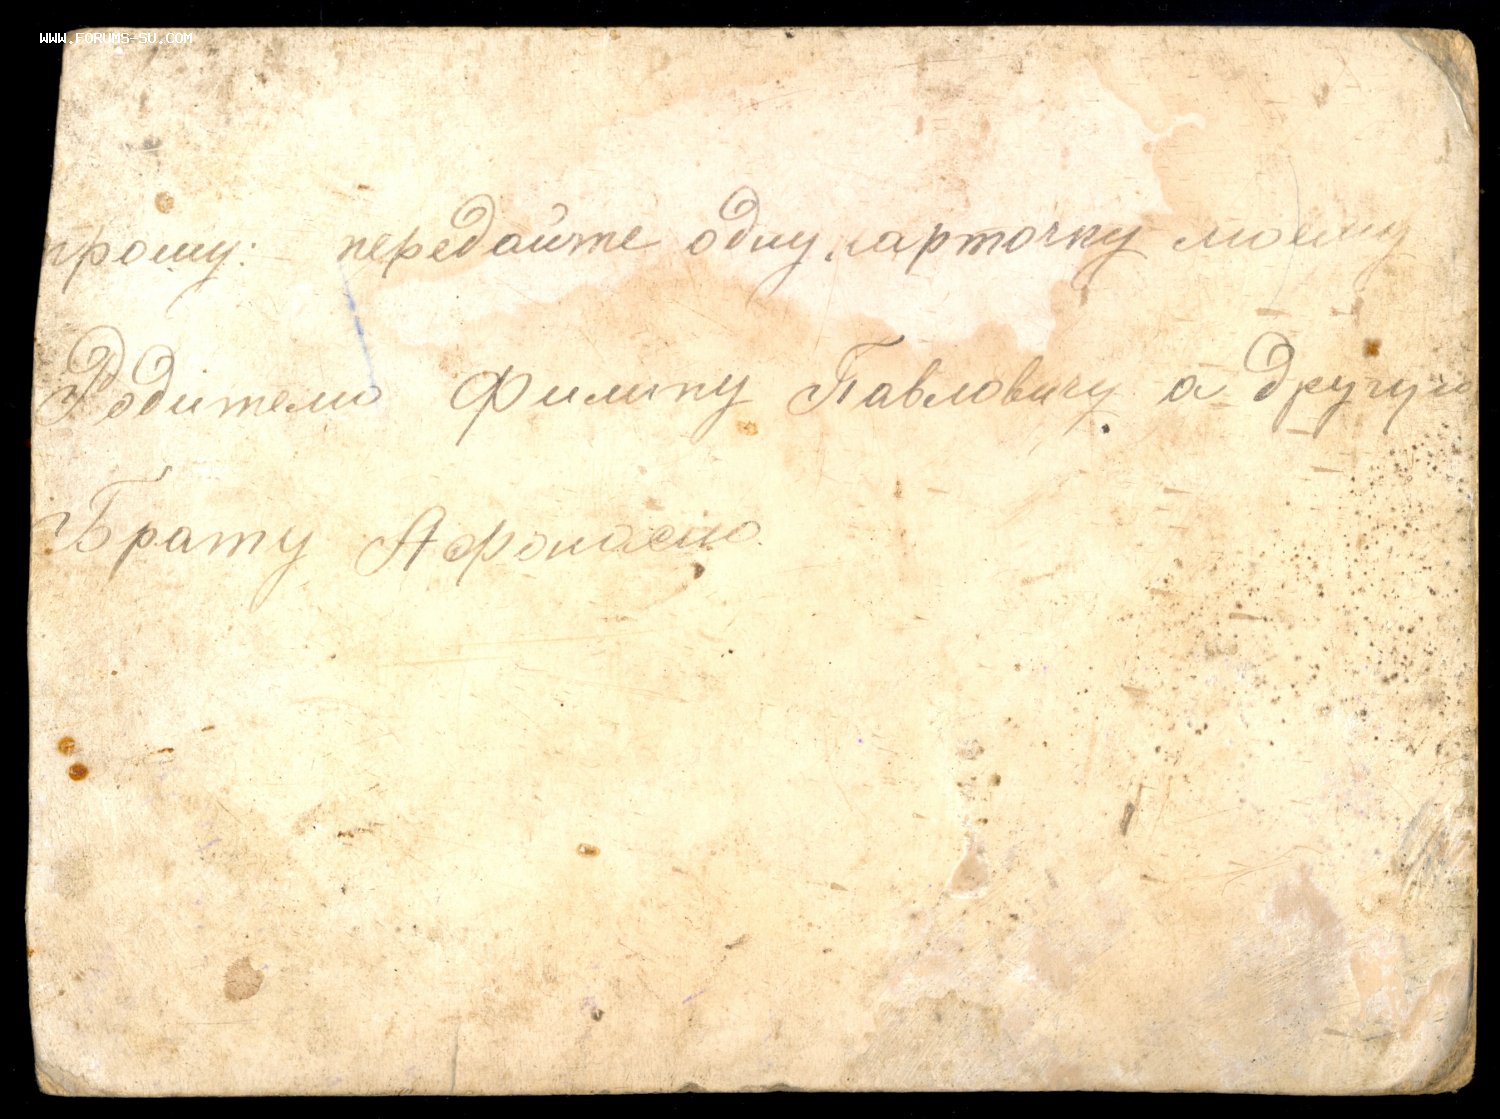 WWW.FORUMS-SU.COM
прошу: передайте одну карточку моему
Родителю Филипу Павловичу а другую
Брату Афонасию.